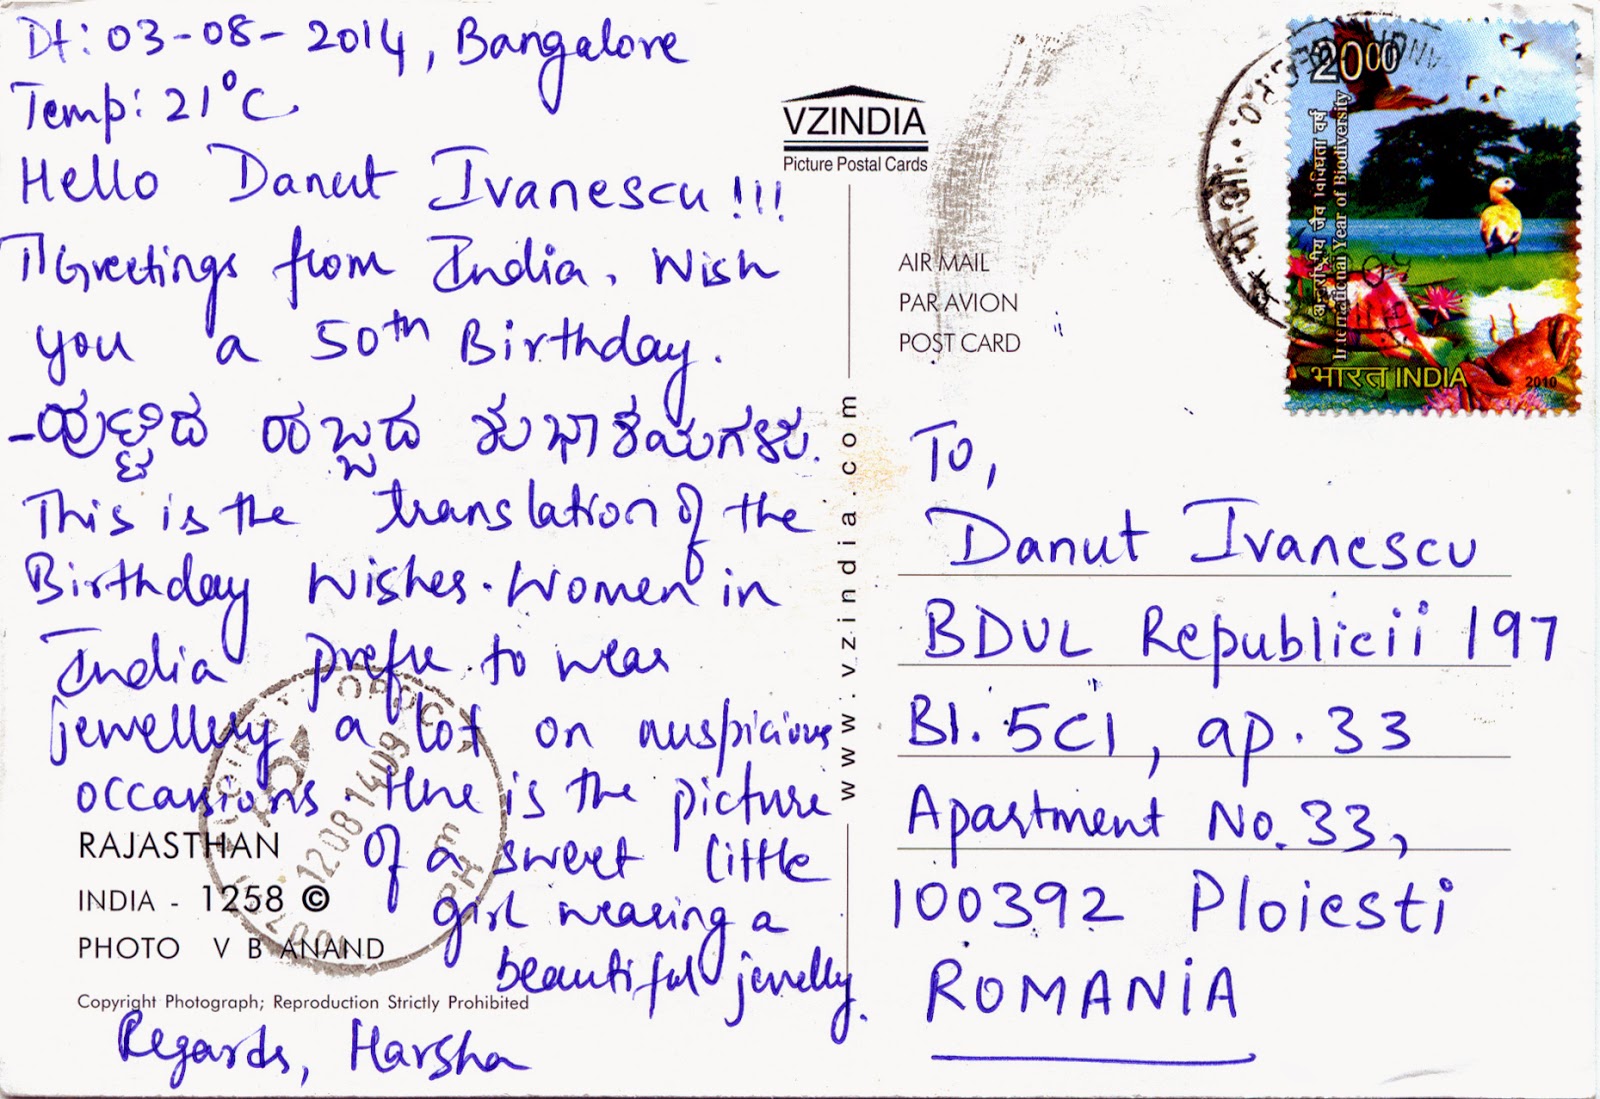 Dt: 03-08-2014, Bangalore
Temp: 21°C
Hello Danut Ivanescu!!!
Greetings from India. Wish
you a 50th Birthday.
-ಹುಟ್ಟಿದ ಹಬ್ಬದ ಶುಭಾಶಯಗಳು.
This is the translation of the
Birthday Wishes. Women in
India prefer to wear
jewellery a lot on auspicious
occassions. Here is the picture
of a sweet little
girl wearing a
beautiful jewelly.
Regards, Harsha
RAJASTHAN
INDIA - 1258 ©
PHOTO V B ANAND
Copyright Photograph; Reproduction Strictly Prohibited
VZINDIA
Picture Postal Cards
www.vzindia.com
AIR MAIL
PAR AVION
POST CARD
20.00
अन्तर्राष्ट्रीय जैव विविधता वर्ष
International Year of Biodiversity
भारत INDIA
2010
To,
Danut Ivanescu
BDUL Republicii 197
Bl. 5C1, ap. 33
Apartment No. 33,
100392 Ploiesti
ROMANIA